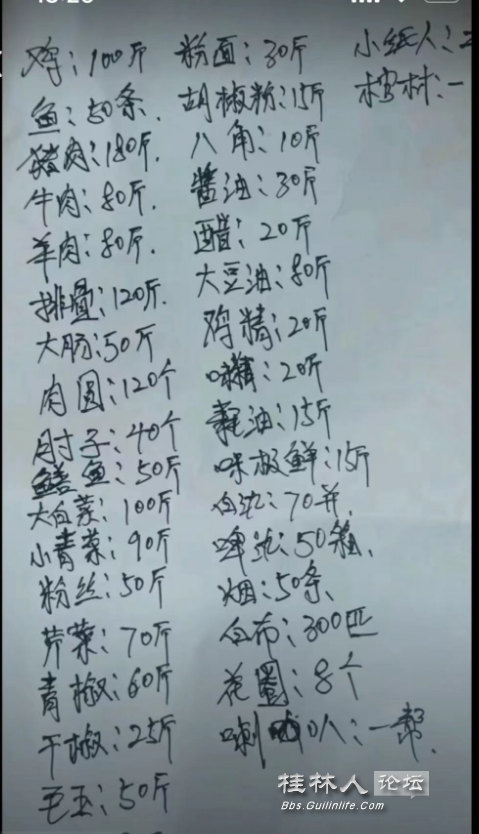 鸡：100斤
鱼：50条.
猪肉：180斤.
牛肉：80斤.
羊肉：80斤.
排骨：120斤.
大肠：50斤
肉圆：120个
肘子：40个
鳝鱼：50斤
大白菜：100斤
小青菜：90斤
粉丝：50斤
芹菜：70斤
青椒：60斤
干椒：25斤
毛玉：50斤
粉面：30斤
胡椒粉：15斤
八角：10斤
醬油：30斤
醋：20斤
大豆油：80斤
鸡精：20斤
味精：20斤
耗油：15斤
味极鲜：15斤
白酒：70并.
啤酒：50箱.
烟：50条.
白布：300匹
花圈：8个
喇叭：一帮.
小纸人：
棺材：一
桂林人论坛
Bbs.Guilinlife.Com